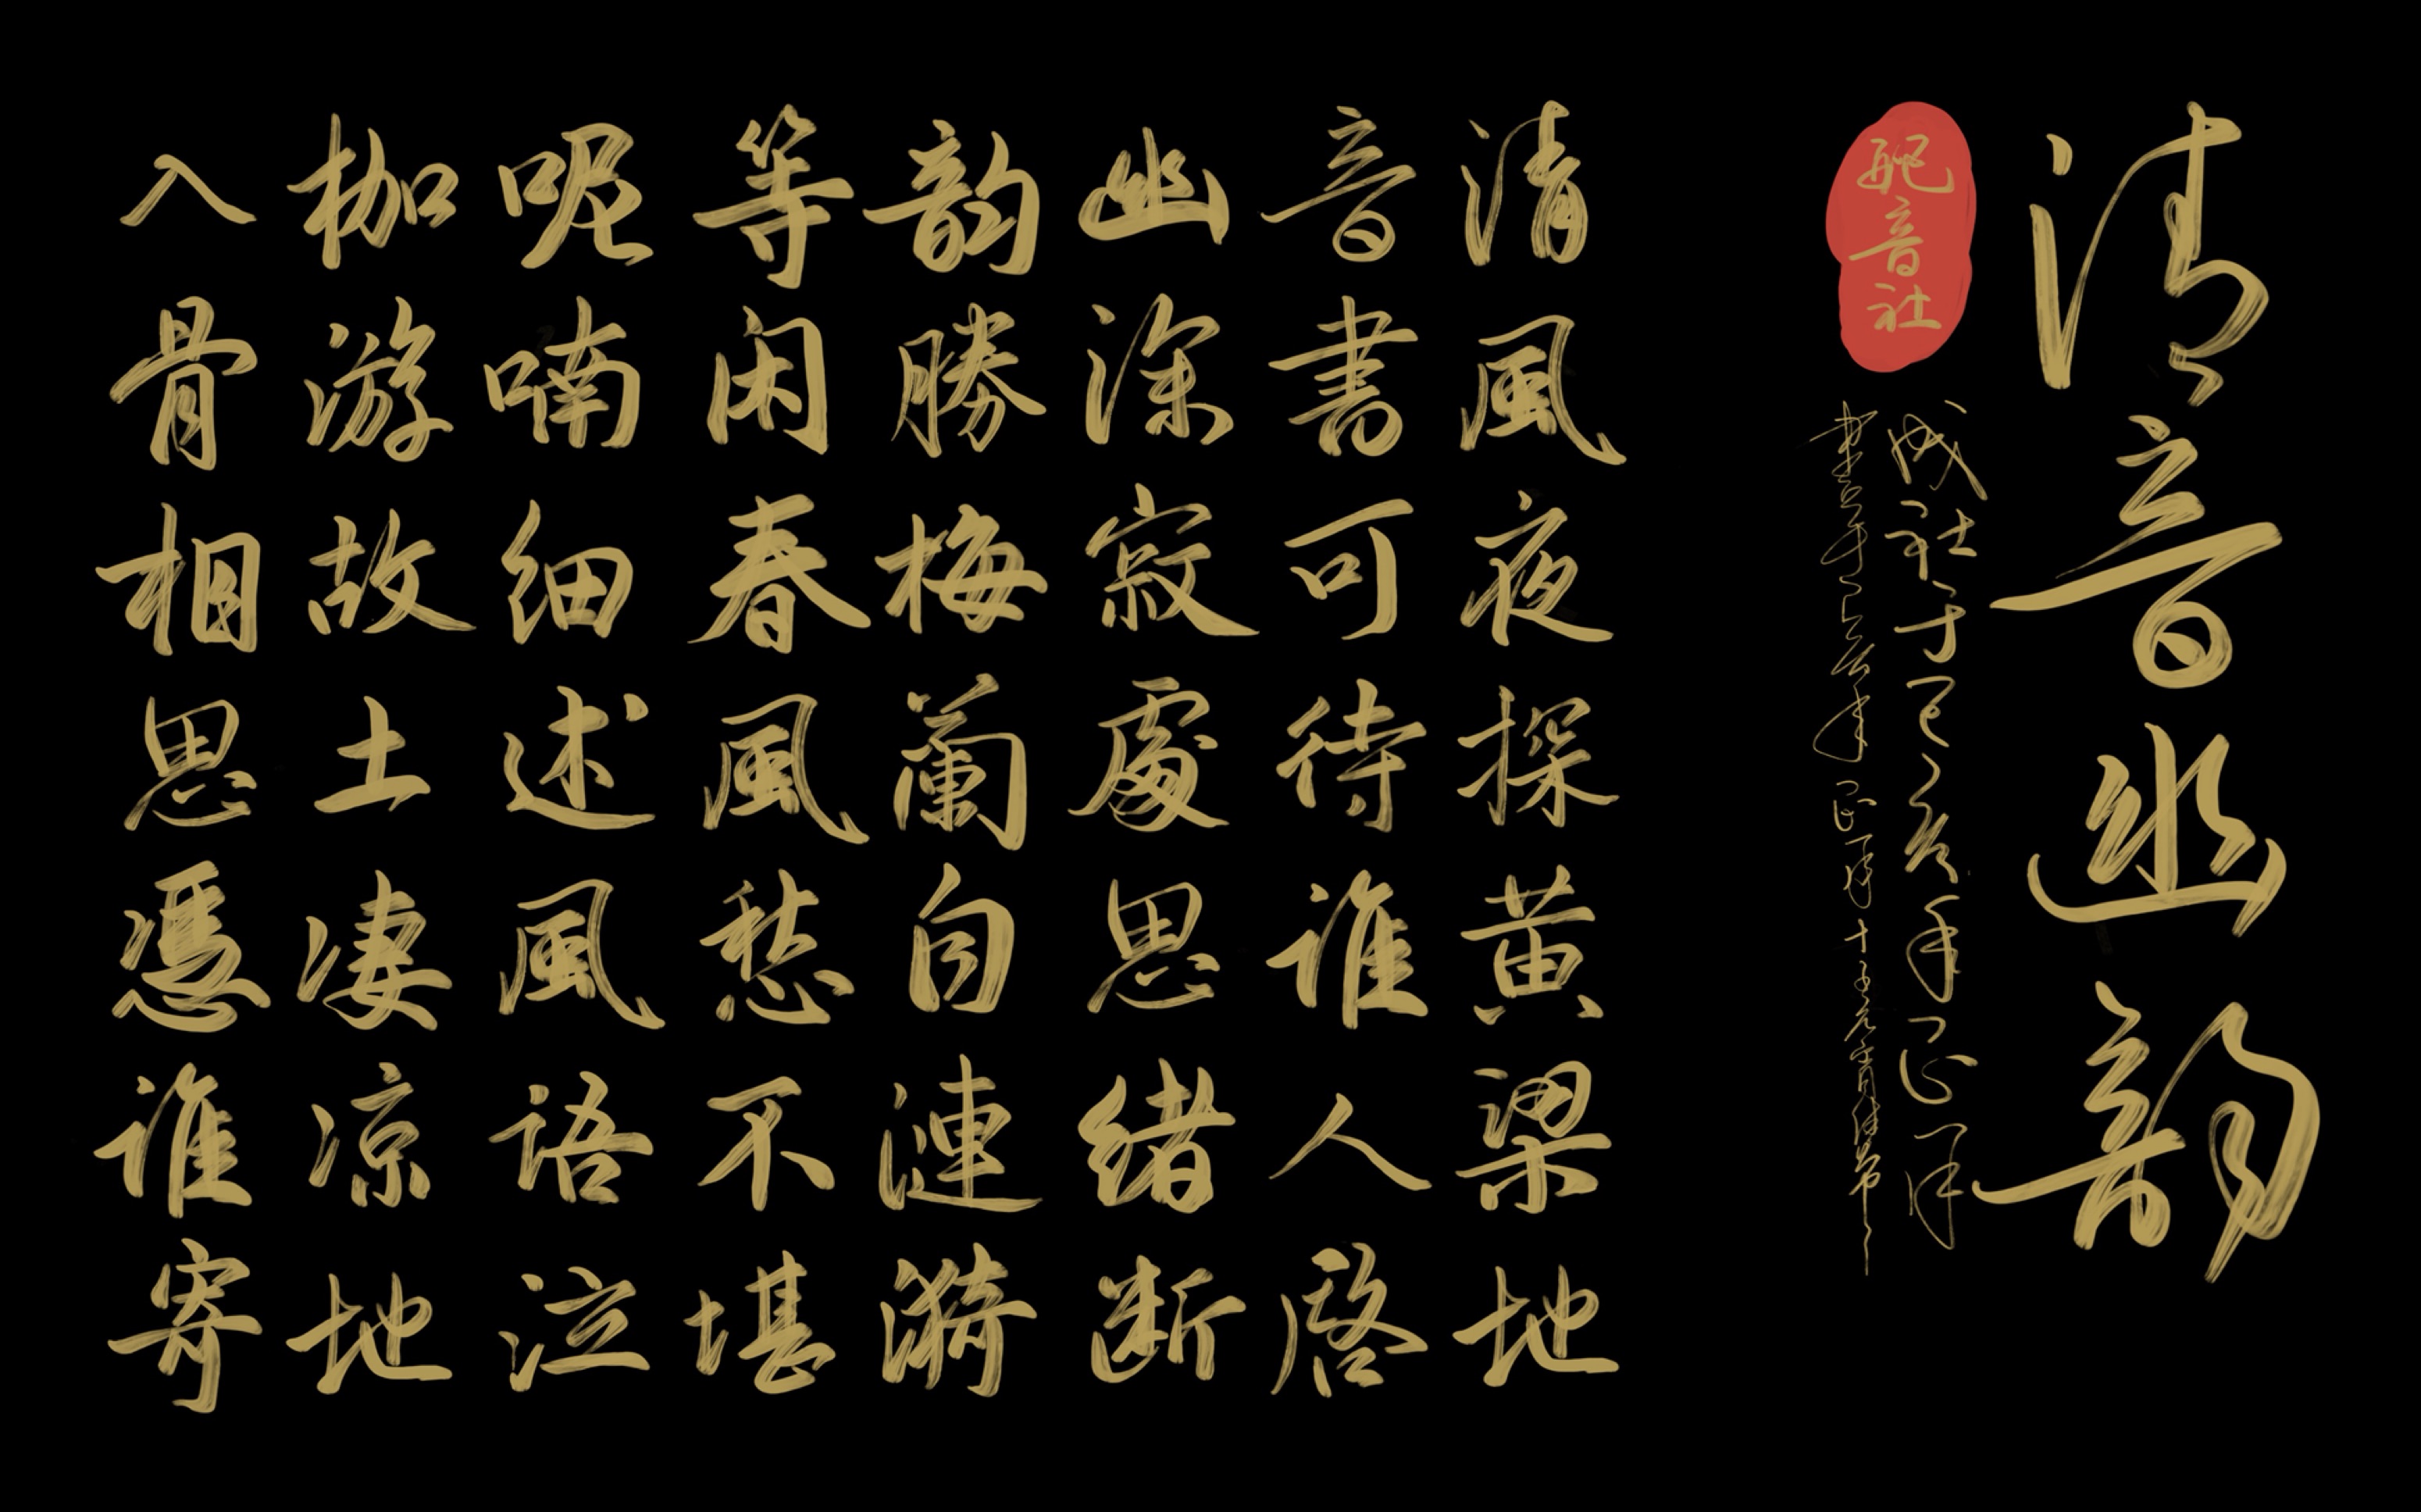 清音幽韵
配音社
清風夜探黄梁地
音書可待谁人啓
幽深寂處思緒断
韵勝梅蘭自漣漪
等闲春風愁不堪
呢喃细述風语泣
枷游故土凄凉地
入骨相思憑谁寄